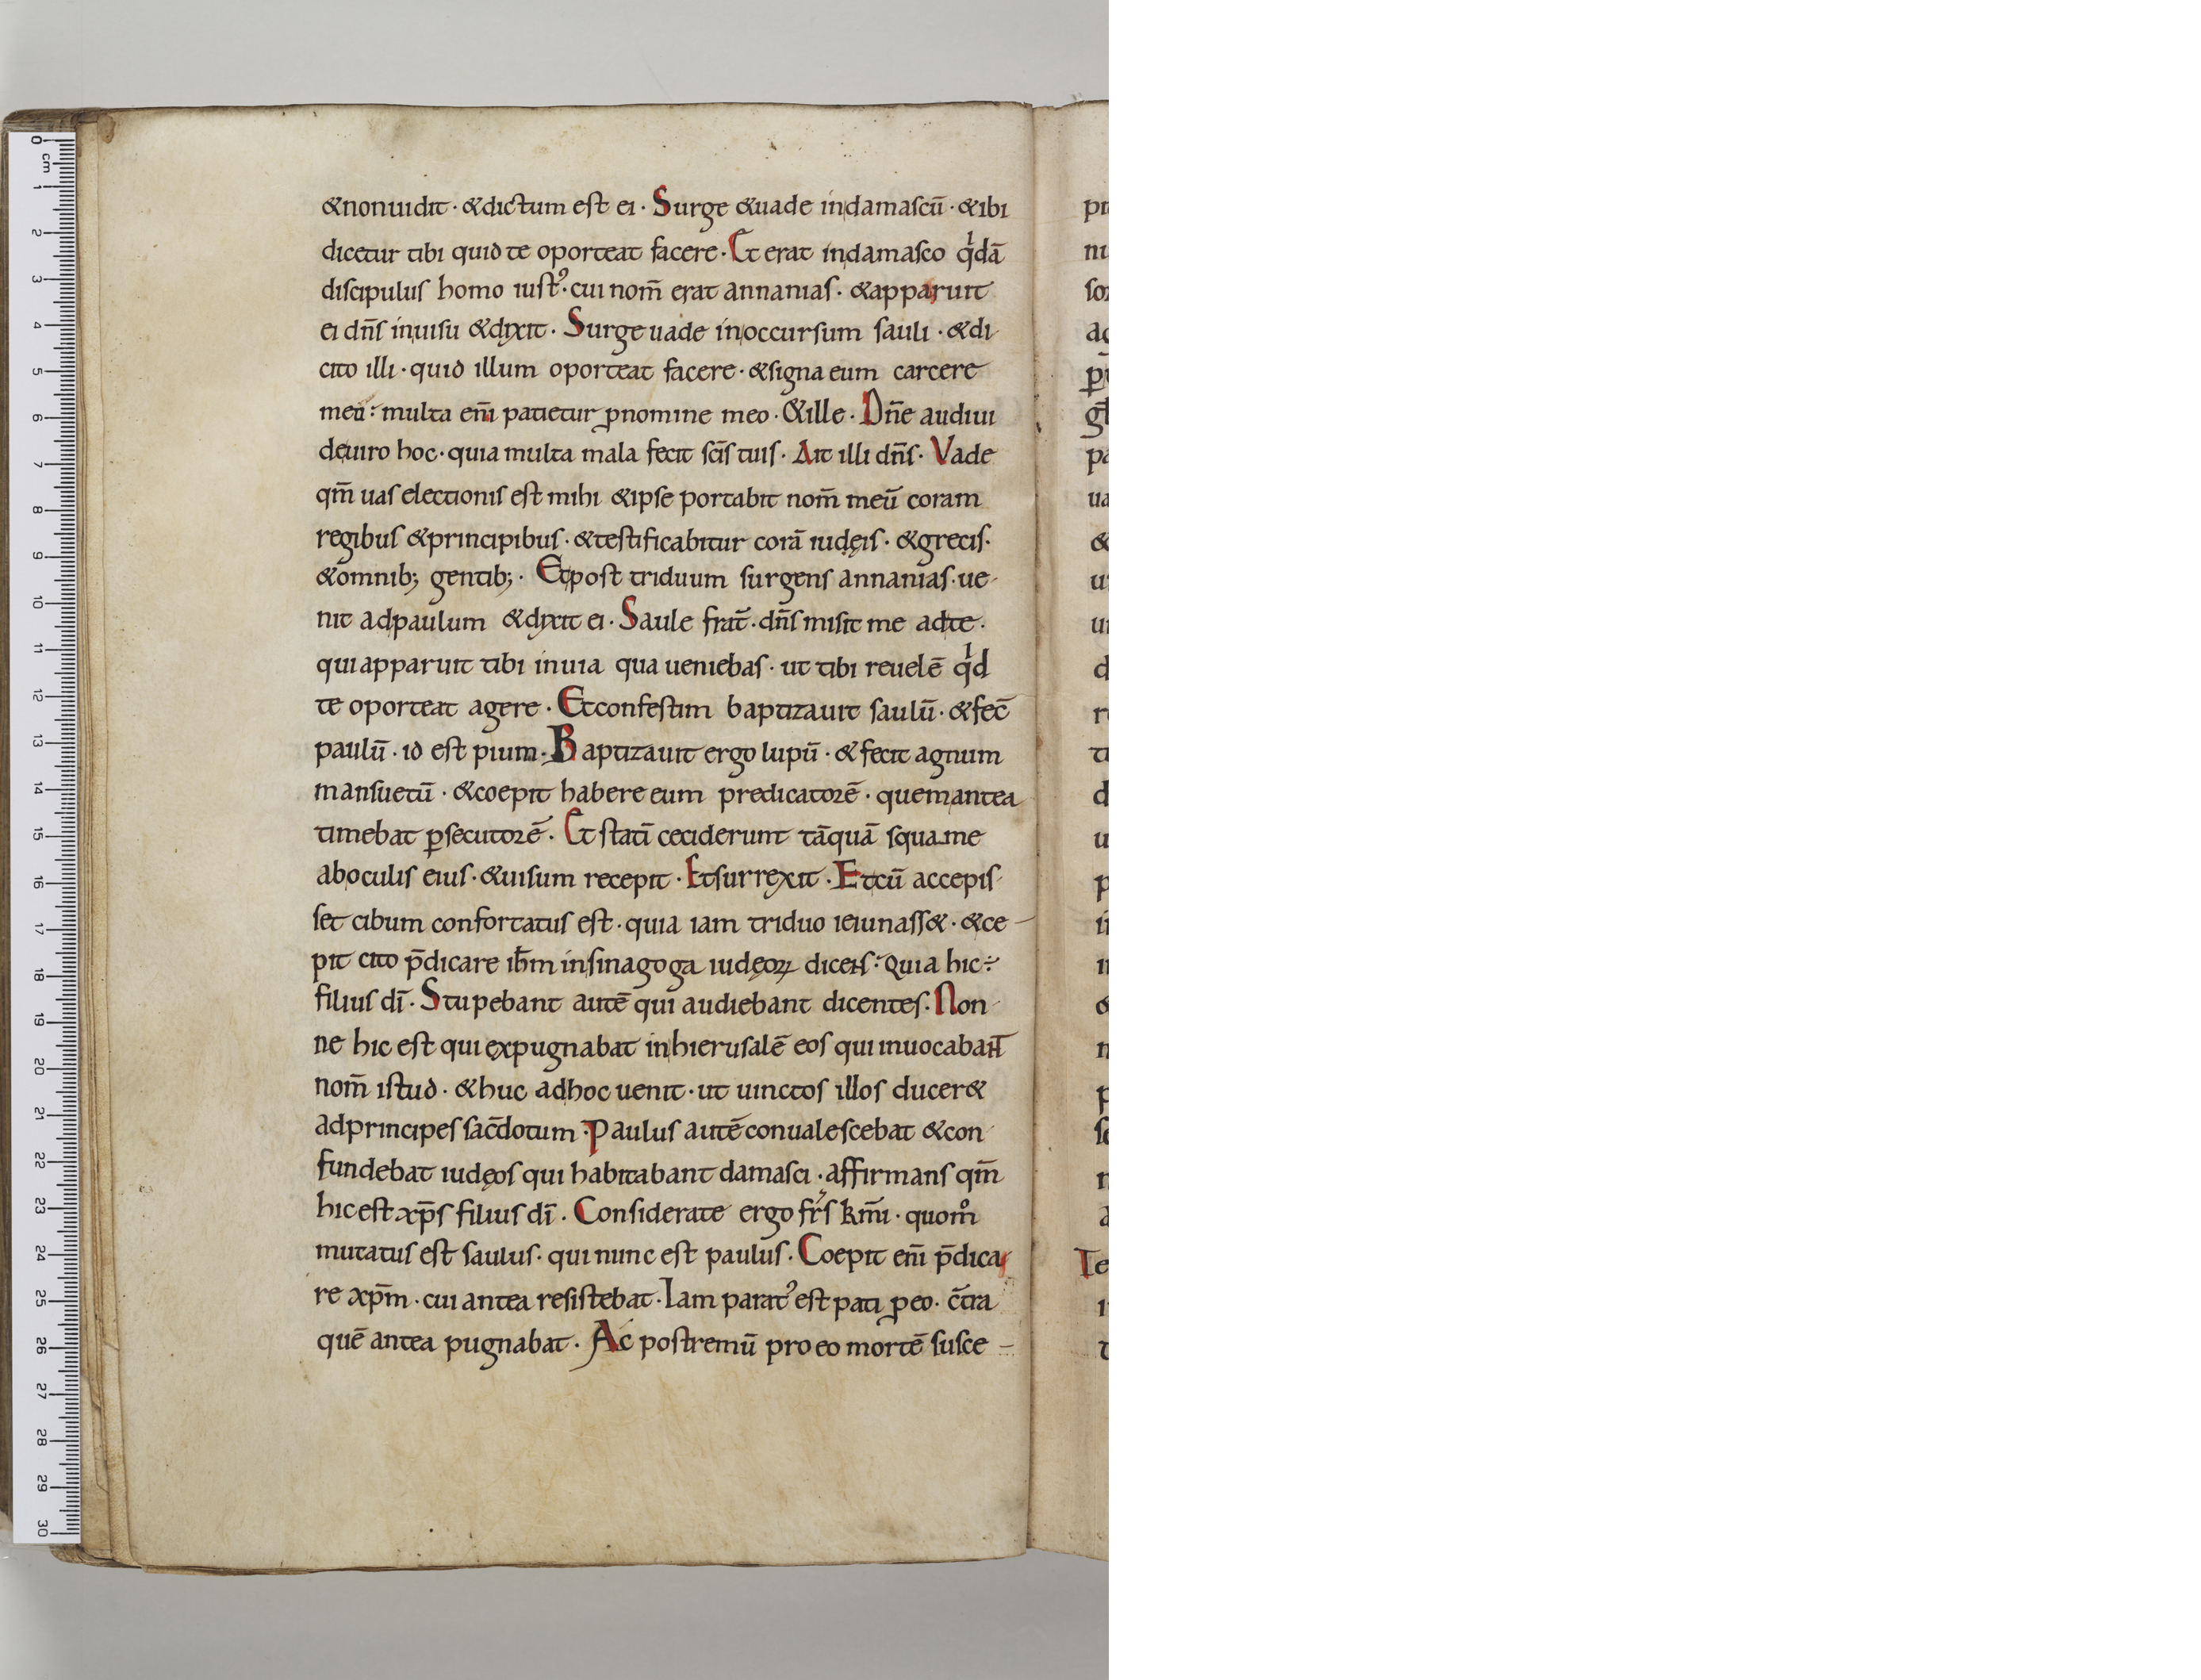 &nonuidit · &dictum est ei · Surge &uade indamascū · &ibi
dicetur tibi quid te oporteat facere · Et erat indamasco qͥdā
discipulus homo iustꝰ · cui nom̄ erat annanias · &apparuit
ei dn̄s inuisu &dixit · Surge uade inoccursum sauli · &di
cito illi · quid illum oporteat facere · &signa eum carcere
meū : multa eni̅ patietur ꝓnomine meo · &ille · Dn̄e audiui
deuiro hoc · quia multa mala fecit sc̄is tuis · Ait illi dn̄s · Vade
qm̄ uas electionis est mihi &ipse portabit nom̄ meū coram
regibus &principibus · &testificabitur corā iudęis · &grecis ·
&omnib; gentib; · Etpost triduum surgens annanias · ue-
nit adpaulum &dixit ei · Saule frat̄ · dn̄s misit me adte ·
quiapparuit tibi inuia qua ueniebas · ut tibi reuelē qͥd
te oporteat agere · Etconfestim baptizauit saulū · &fec̄
paulū · id est pium · Baptizauit ergo lupū · & fecit agnum
mansuetū · &coepit habere eum predicatorē · quemantea
timebat ꝑsecutorē · Et statī ceciderunt tāquā squame
aboculis eius · &uisum recepit · Etsurrexit · Etcū accepis-
set cibum confortatus est · quia iam triduo ieiunass& · &ce-
pit cito p̄dicare ih̄m insinagoga iudęoꝝ dicens : Quia hic ÷
filius dī · Stupebant autē qui audiebant dicentes · Non-
ne hic est qui expugnabat inhierusalē eos qui inuocabant
nom̄ istud · &huc adhoc uenit · ut uinctos illos ducer&
adprincipes sac̄dotum · Paulus autē conualescebat &con-
fundebat iudęos qui habitabant damasci · affirmans qm̄
hic est xp̄s filius dī · Considerate ergo fr̄s km̄i · quom̊
mutatus est saulus · qui nunc est paulus · Coepit eni̅ p̄dica
re xp̄m · cui antea resistebat · Iam paratꝰ est pati ꝓ eo · c̄tra
quē antea pugnabat · Ac postremū pro eo mortē susce-